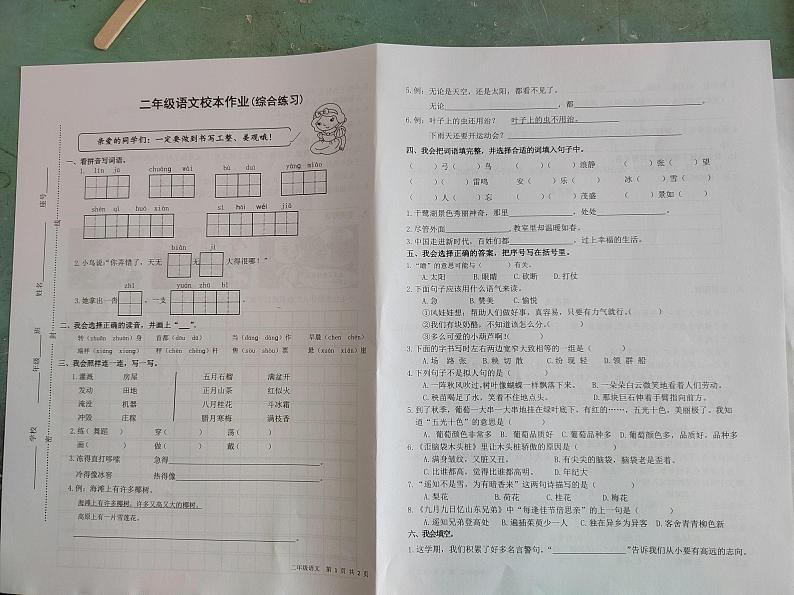 二年级语文校本作业(综合练习)
亲爱的同学们：一定要做到书写工整、美观哦！
一、看拼音写词语。
1. lín jū chuāng wài hù duì yāng miáo
shēn qī huó xiàn sì hǎi wéi jiā
biān jì
2.小鸟说:“你弄错了，天无 无 大得很哪！”
zhǐ yuán zhū bǐ
3.她拿出一沓 ，一支 。
二、我会选择正确的读音，并画上“___”。
转（zhuǎn zhuàn）身 首都（dū dōu） 当（dāng dàng）作 早晨（chén chéng）
瑞 秤（chèn chèng）杆 售（shòu）票 悬（xuán xián）崖
三、我会照样连一连，写一写。
1.灌溉 房屋 五月石榴 满盆开
发动 田地 正月山茶 红似火
淹没 机器 八月桂花 斗冰霜
冲毁 庄稼 腊月寒梅 满枝香
2.练（ 舞蹈 ） 穿（ ） 荡（ ）
画（ ） 做（ ） 戴（ ）
3.冻得直打哆嗦 急得 。
冷得像冰窖 热得像 。
4.例：海滩上有许多椰树。
海滩上有许多椰树，许多又高又大的椰树。
高原上有一片雪莲花。
二年级语文 第 1 页 共 2 页
学校 年级 班 姓名 座号
密 封 线
5.例：无论是天空，还是太阳，都看不见了。
无论 ，都 。
6.例：叶子上的虫还用治？ 叶子上的虫不用治。
下雨天还要开运动会？
四、我会把词语填完整，并选择合适的词填入句子中。
（ ）弓（ ）鸟 （ ）（ ）浪静 （ ）张（ ）望
（ ）（ ）雷鸣 安（ ）乐（ ） 冰（ ）雪（ ）
（ ）人（ ）忘 （ ）（ ）茂盛 （ ）景如（ ）
1.干鹭湖景色秀丽神奇，那里 ，处处 。
2.尽管外面 ，教室里却温暖如春。
3.中国走进新时代，百姓们都 ，过上幸福的生活。
五、我会选择正确的答案，把序号写在括号里。
1.“瞻”的意思可能与（ ）有关。
A.太阳 B.眼睛 C.砍断 D.打仗
2.下面句子应该用什么语气来读。
A.急 B.赞美 C.愉悦
①风娃娃想：帮助人们做好事，真容易，只要有力气就行。（ ）
②我们有块奶酪，不知道该怎么分。（ ）
③多么可爱的小葫芦啊！（ ）
3.下面的字书写时左右两边宽窄大致相等的一组是（ ）
A.场 路 张 B.秧 切 散 C.纷 现 轻 D.领 群 船
4.下列句子不是拟人句的是（ ）
A.一阵秋风吹过，树叶像蝴蝶一样飘落下来。 B.一朵朵白云微笑地看着人们劳动。
C.秧苗喝足了水，笑着不住地点头。 D.那块巨石伸着手臂指向前方。
5.到了秋季，葡萄一大串一大串地挂在绿叶底下，有红的……，五光十色，美丽极了。我知
道“五光十色”的意思是（ ）
A. 葡萄颜色非常多 B. 葡萄品质好 C. 葡萄品种多 D. 葡萄颜色多，品质好，品种多
6.《歪脑袋木头桩》里让木头桩骄傲的原因是（ ）
A.满身皱纹，又脏又丑。 B.有尖尖的脑袋，脑袋老是歪着。
C.比谁都高，觉得比谁都高明。 D.年纪大
7.“遥知不是雪，为有暗香来”这两句诗描写的是（ ）
A.梨花 B.荷花 C.桂花 D.梅花
8.《九月九日忆山东兄弟》中“每逢佳节倍思亲”的上一句是（ ）
A.遥知兄弟登高处 B.遍插茱萸少一人 C.独在异乡为异客 D.客舍青青柳色新
六、我会填空。
1.这学期，我们积累了好多名言警句，“ ”告诉我们从小要有高远的志向。